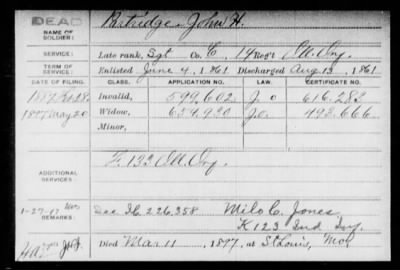 DEAD
NAME OF SOLDIER: Partridge, John H.
SERVICE: Late rank, Sgt Co. C, 14 Reg't Ill. Inf.
Enlisted June 4, 1861 Discharged Aug 13, 1861
DATE OF FILING. CLASS. APPLICATION NO. LAW. CERTIFICATE NO.
1887 Feb 28 Invalid, 599.602 J. O 616.283
1897 May 20 Widow, 654.930 J.O. 493.666
Minor,
ADDITIONAL SERVICES: F. 133 Ill. Inf.
1-27-17
REMARKS: 226.358 Milo C. Jones
K 123 Ind Inf.
Died Mar 11, 1897, at St Louis, Mo